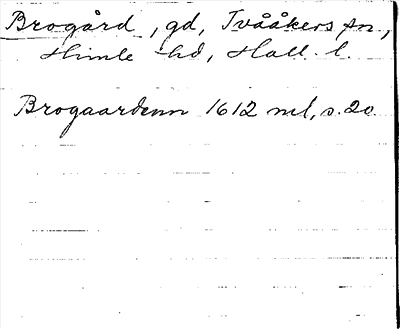 Brogård, gd, Tvååkers sn,
Himle hd, Hall. l.
Brogaardenn 1612 ml, s. 20.